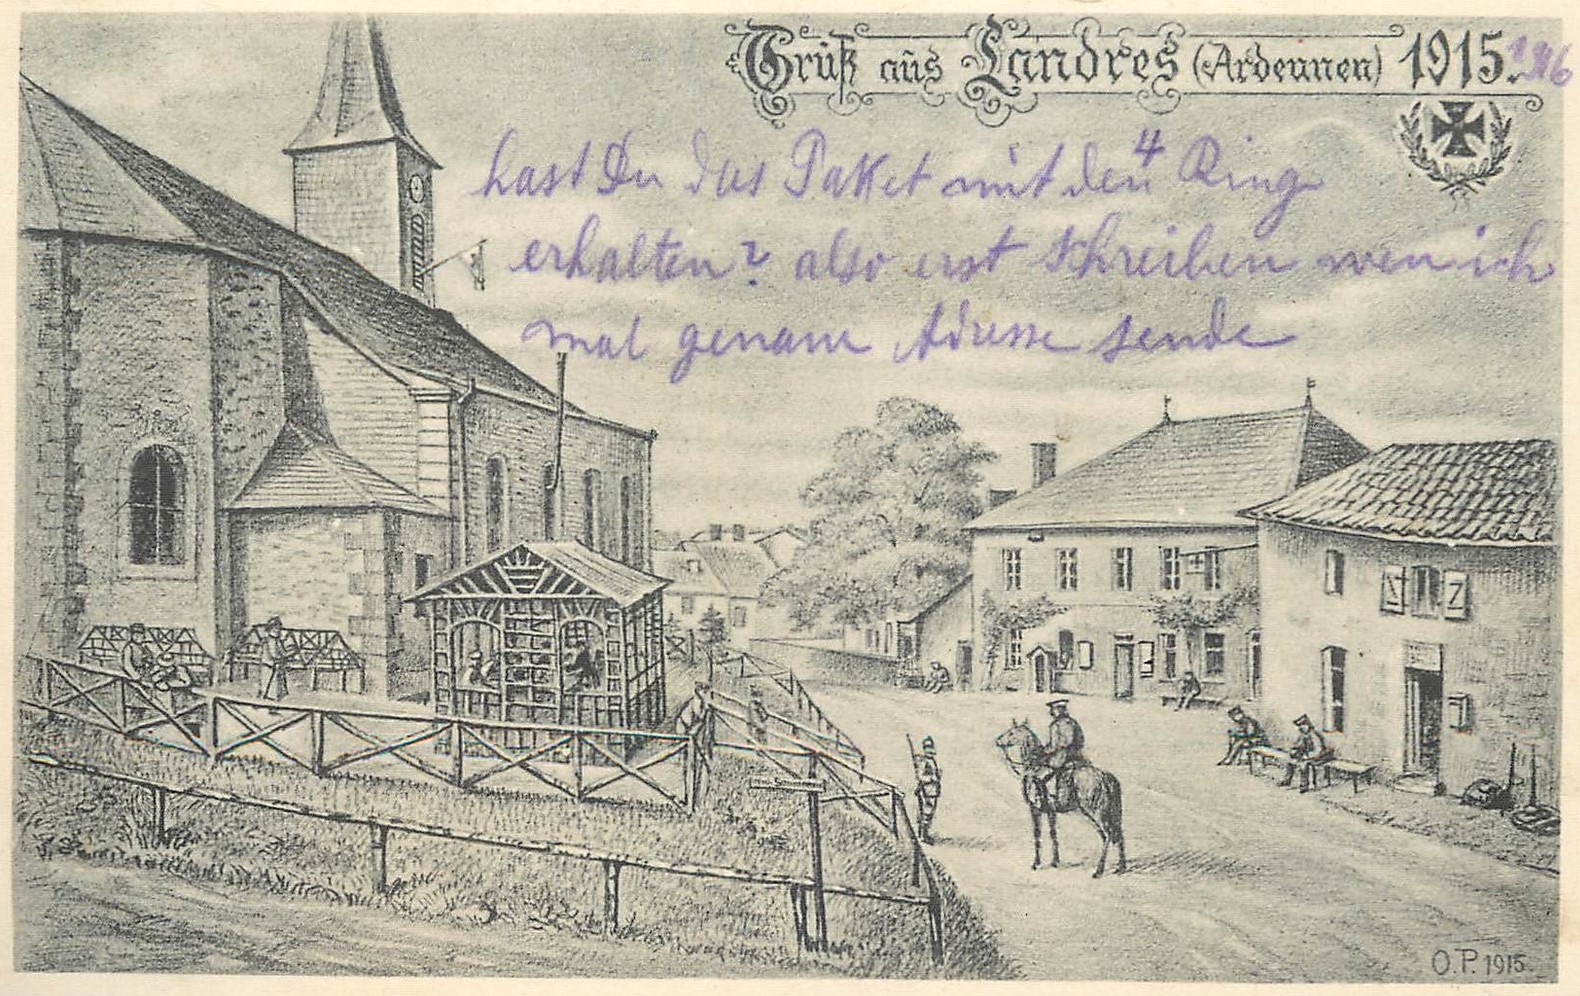 Gruß aus Landres (Ardennen) 1915.
hast Du das Pakket mit den 4 Ring
erhalten? also erst schreiben wen ich
mal genaue Adresse sende
O.P. 1915.